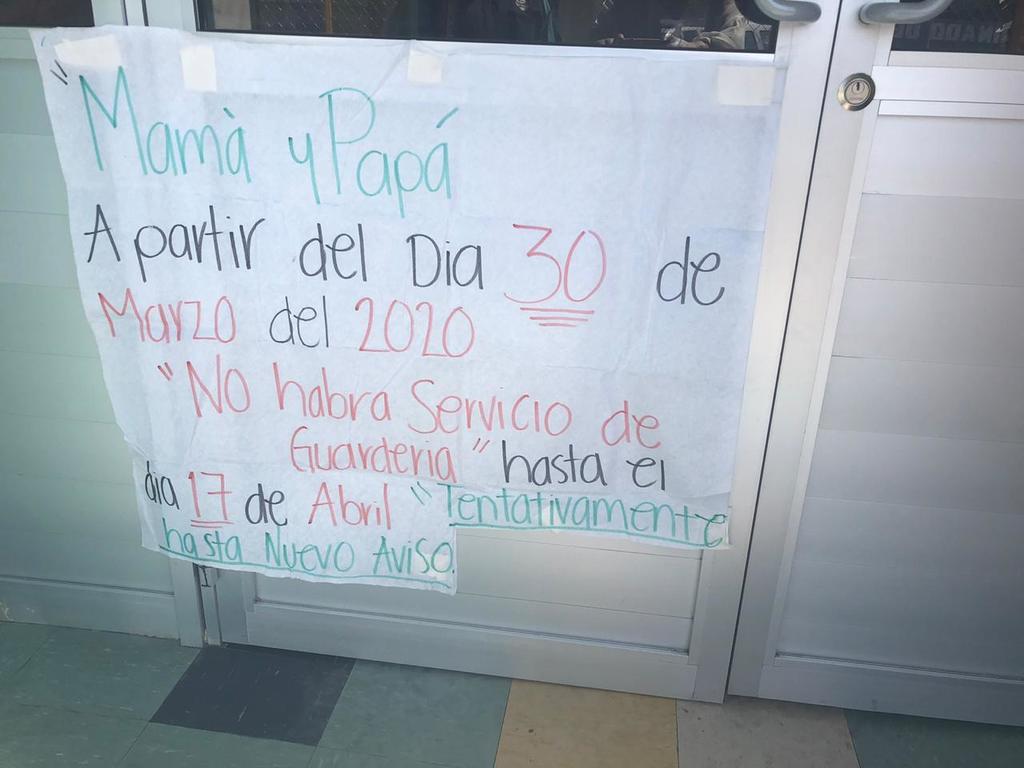 "Mamà y Papá
A partir del Dia 30 de
Marzo del 2020
"No habra Servicio de
Guarderia" hasta el
dia 17 de Abril "Tentativamente
hasta Nuevo Aviso.